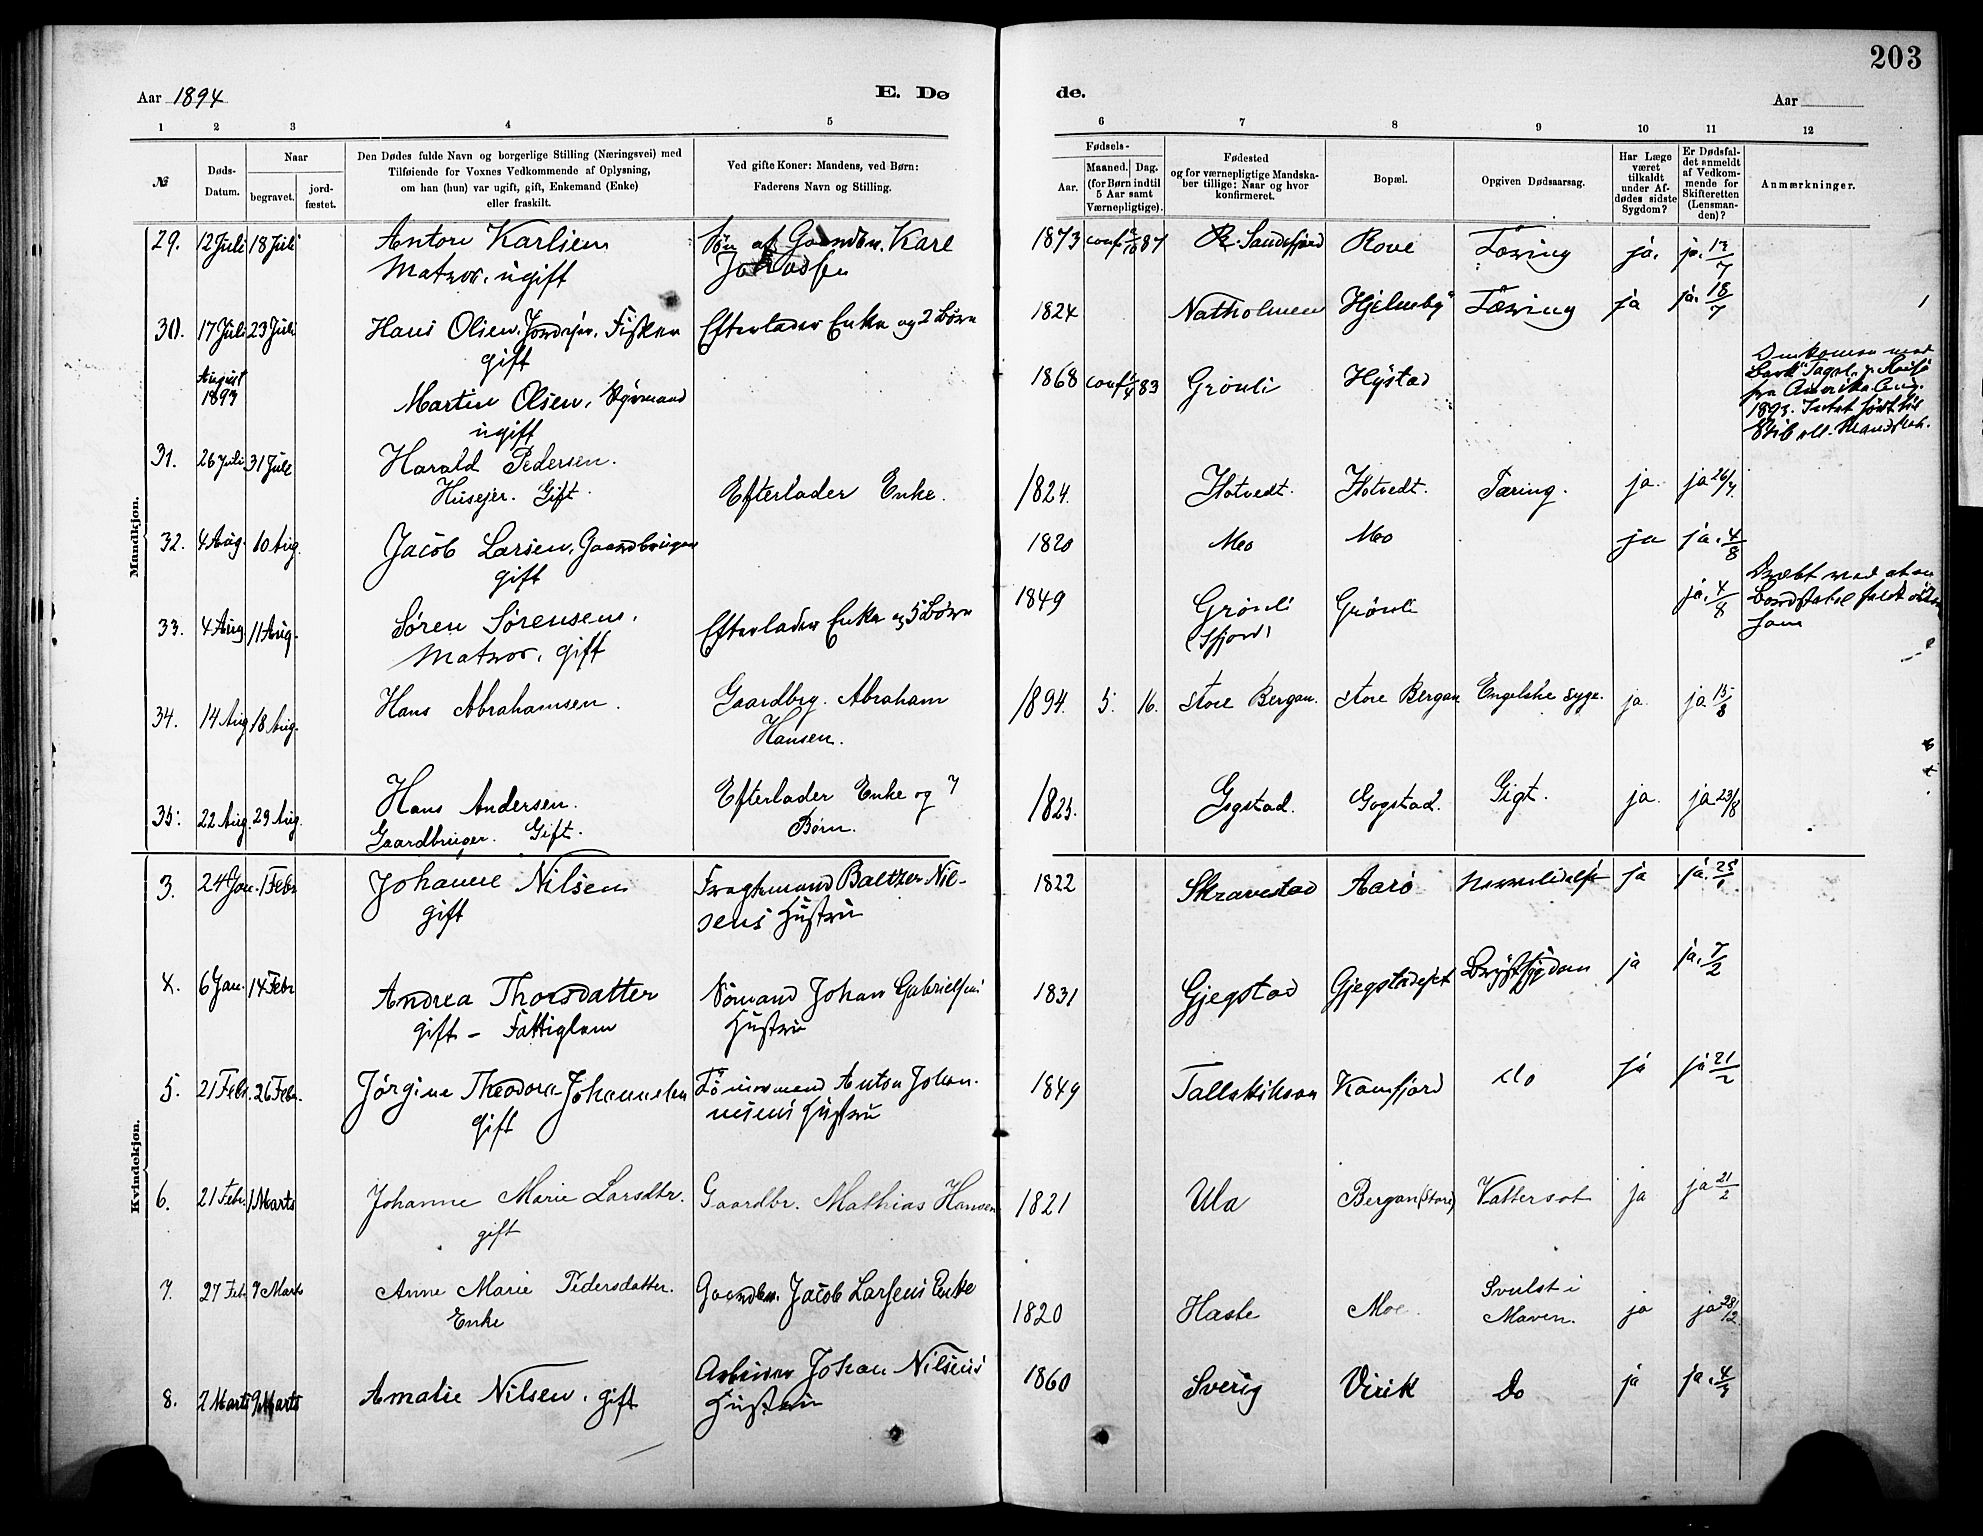 203
Aar 1894
E. Dø
de.
Aar
1 2 3 4 5 6 7 8 9 10 11 12
№
Døds-Datum.
Naar
begravet.
jord-fæstet.
Den Dødes fulde Navn og borgerlige Stilling (Næringsvei) med
Tilføiende for Voxnes Vedkommende af Oplysning,
om han (hun) var ugift, gift, Enkemand (Enke)
eller fraskilt.
Ved gifte Koner: Mandens, ved Børn:
Faderens Navn og Stilling.
Fødsels-
Aar.
Maaned. Dag.
(for Børn indtil
5 Aar samt
Værnepligtige).
Fødested
og for værnepligtige Mandska-
ber tillige: Naar og hvor
konfirmeret.
Bopæl.
Opgiven Dødsaarsag.
Har Læge
været
tilkaldt
under Af-
dødes sidste
Sygdom?
Er Dødsfal-
det anmeldt
af Vedkom-
mende for
Skifteretten
(Lensman-
den)?
Anmærkninger.
Mandkjøn.
29. 12 Juli 18 Juli Anton Karlsen Søn af Gaardbr. Karl 1873 conf 87 Sandefjord Rove Tæring ja. ja. 13/7
Matros, ugift
30. 17 Juli 23 Juli Hans Olsen, Fisker Efterlader Enke og 2 Børn 1824 Natholmen Hjelmby Tæring ja ja. 18/7
gift
August
1893 Martin Olsen, ugift 1868 conf 83 Grönli Hystad
fra Amerika Aug.
1893.
31. 26 Juli 31 Juli Harald Pedersen.
Huseier. Gift. Efterlader Enke. 1824. Hotvedt. Hotvedt. Tæring. ja. ja 26/7
32. 4 Aug. 10 Aug. Jacob Larsen, Gaardbruger 1820 Mo Mo ja ja. 4/8
gift
33. 4 Aug. 11 Aug. Sören Sörensen, Efterlader Enke og 5 Børn 1849 Grönli Grönli ja. 4/8
Matros, gift
34. 14 Aug 18 Aug. Hans Abrahamsen. Gaardbrg. Abraham 1894. 5. 16. Store Bergan. Store Bergan Engelske Syge. ja ja 15/8
Hansen.
35. 22 Aug. 29 Aug. Hans Andersen. Efterlader Enke og 7 1825. Gogstad. Gogstad. Gigt. ja. ja 23/8
Gaardbruger. Gift. Børn.
Kvindekjøn.
3. 24 Jan. 1 Febr Johanne Nilsen Fragtemand Baltzer Nil- 1822 Skravestad Aarö ja ja. 25/1
gift sens Hustru
4. 6 Jan. 14 Febr Andrea Thorsdatter Sömand Johan Gabrielsens 1831 Gjegstad Brystsygdom ja ja. 7/2
gift - Fattiglem Hustru
5. 21 Febr. 26 Febr. Jörgine Theodora Johannesen Anton Johan- 1849 Kamfjord do ja ja 21/2
gift nisens Hustru
6. 21 Febr. 1 Marts Johanne Marie Larsdtr. Gaardbr. Mathias Hansen 1821 Ula Bergan (Store) Vattersot ja ja 21/2
gift
7. 27 Feb. 7 Marts Anne Marie Pedersdatter. Gaardbr. Jacob Larsens Enke 1820 Hasle Moe Svulst i ja ja
Enke Maven.
8. 2 Marts 9 Marts Amalie Nilsen, gift Arbeider Johan Nilsens 1860 Sverig Virik Do ja ja.
Hustru